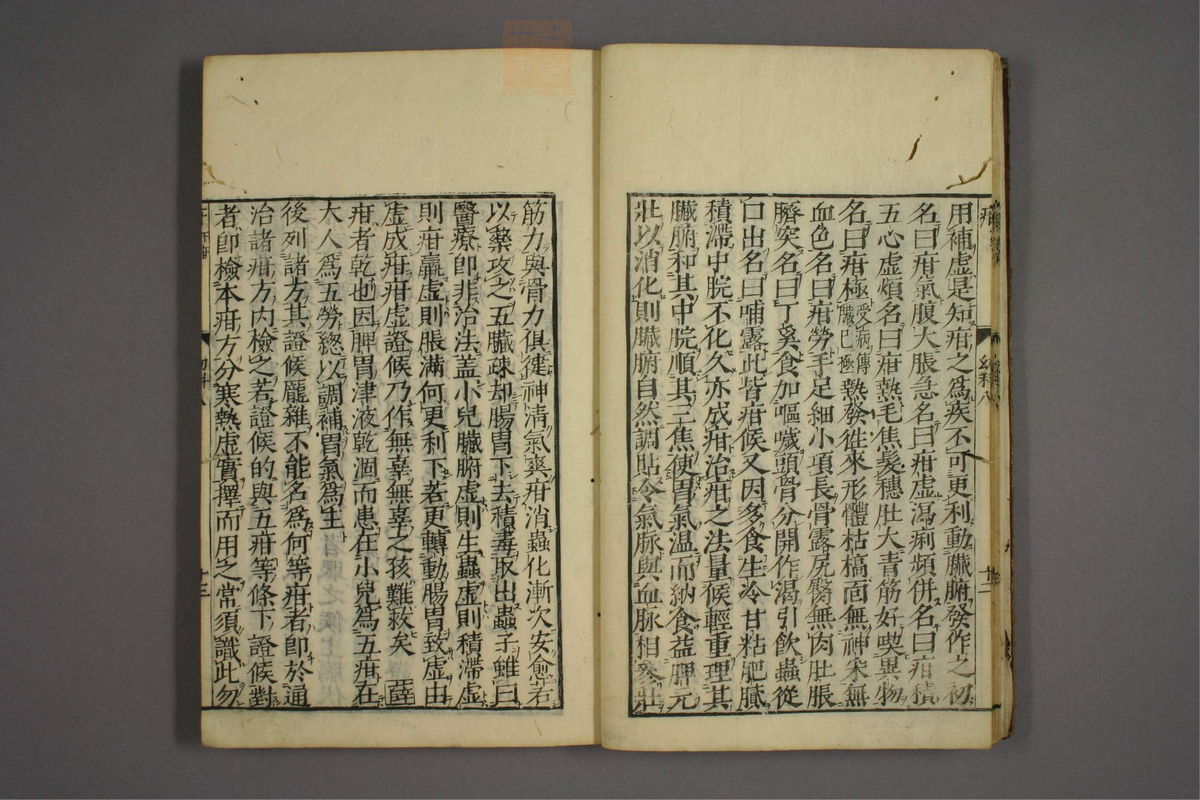 用補虛是短疳之爲疾不可更利動臟腑發作之初
名曰疳氣腹大脹急名曰疳虛瀉痢頻併名曰疳積
五心虛煩名曰疳熱毛焦髮穗肚大青筋好喫異物
名曰疳極受病傳臟已極熱發徃來形體枯槁面無神宋無
血色名曰疳勞手足細小項長骨露尻臀無肉肚脹
臍突名曰丁奚食加嘔噦頭骨分開作渴引飲蟲從
口出名曰哺露此皆疳候又因多食生冷甘粘肥膩
積滯中脘不化久亦成疳治疳之法量候輕重理其
臟腑和其中脘順其三焦使胃氣温而納食益脾元
壯以消化則臟腑自然調貼令氣脉與血脉相參壯
幼科八
十二
筋力與骨力俱健神清氣爽疳消蟲化漸次安愈若
以藥攻之五臟疎却腸胃下去積毒取出蟲子雖曰
醫療卽非治法盖小兒臟腑虛則生蟲虛則積滯虛
則疳羸虛則脹滿何更利下若更轉動腸胃致虛由
虛成疳疳虛證候乃作無辜無辜之孩難救矣 薛
疳者乾也因脾胃津液乾涸而患在小兒爲五疳在
大人爲五勞總以調補胃氣爲主
後列諸方其證候龐雜不能名爲何等疳者卽於通
治諸疳方內檢之若證候的與五疳等條下證候對
者卽檢本疳方分寒熱虛實擇而用之常須識此勿
幼科八
十三